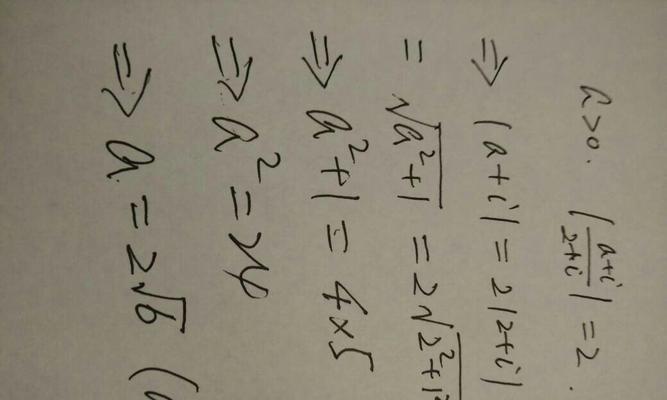 a>0. |a+i/2+i| = 2.
⇒ |a+i| = 2|2+i|
= √a²+1 = 2√2²+1²
⇒ a²+1 = 4×5
⇒ a² = 24
⇒ a = 2√6 (